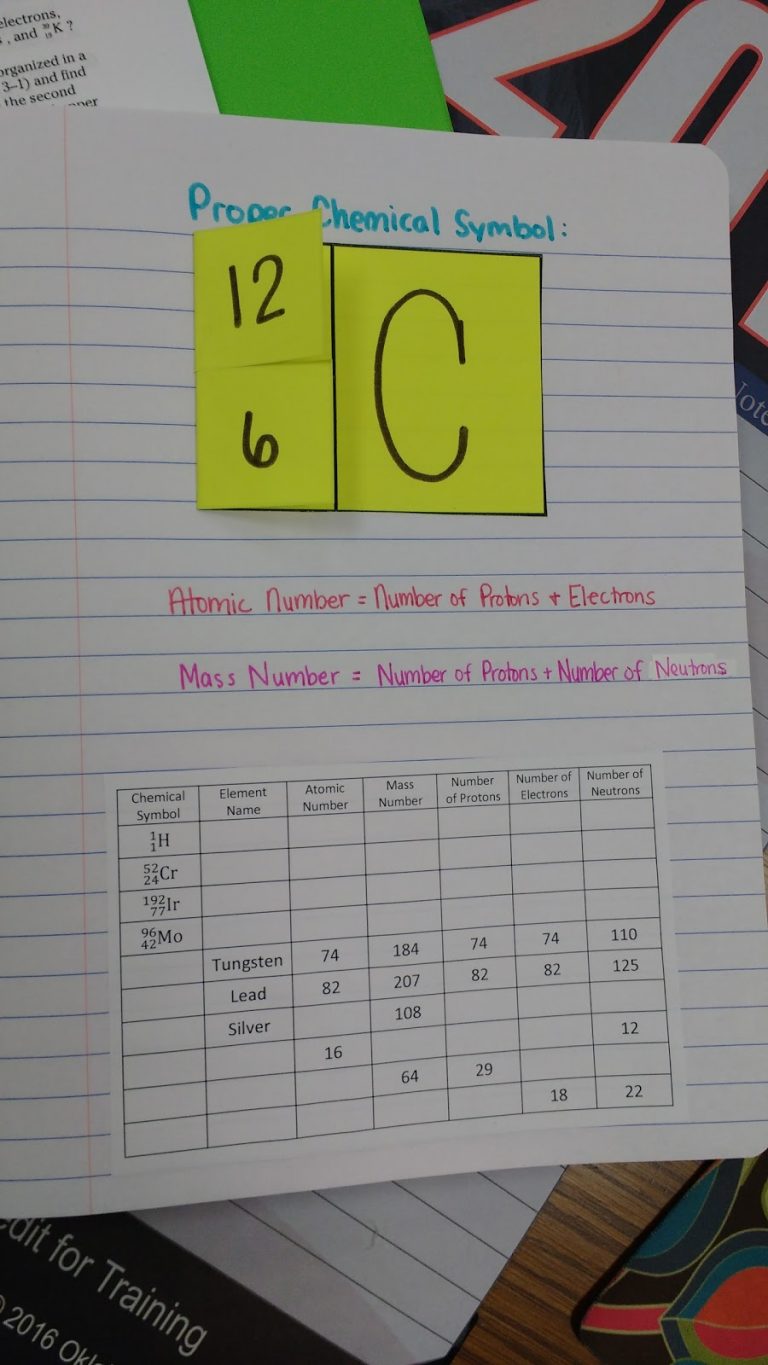 electrons,
, and ³⁹₁₉K ?
organized in a
3–1) and find
the second
Proper Chemical Symbol:
12
6
C
Atomic Number = Number of Protons + Electrons
Mass Number = Number of Protons + Number of Neutrons
Chemical Symbol Element Name Atomic Number Mass Number Number of Protons Number of Electrons Number of Neutrons
¹₁H
⁵²₂₄Cr
¹⁹²₇₇Ir
⁹⁶₄₂Mo
Tungsten 74 184 74 74 110
Lead 82 207 82 82 125
Silver 108
16 12
64 29
18 22
for Training
2016